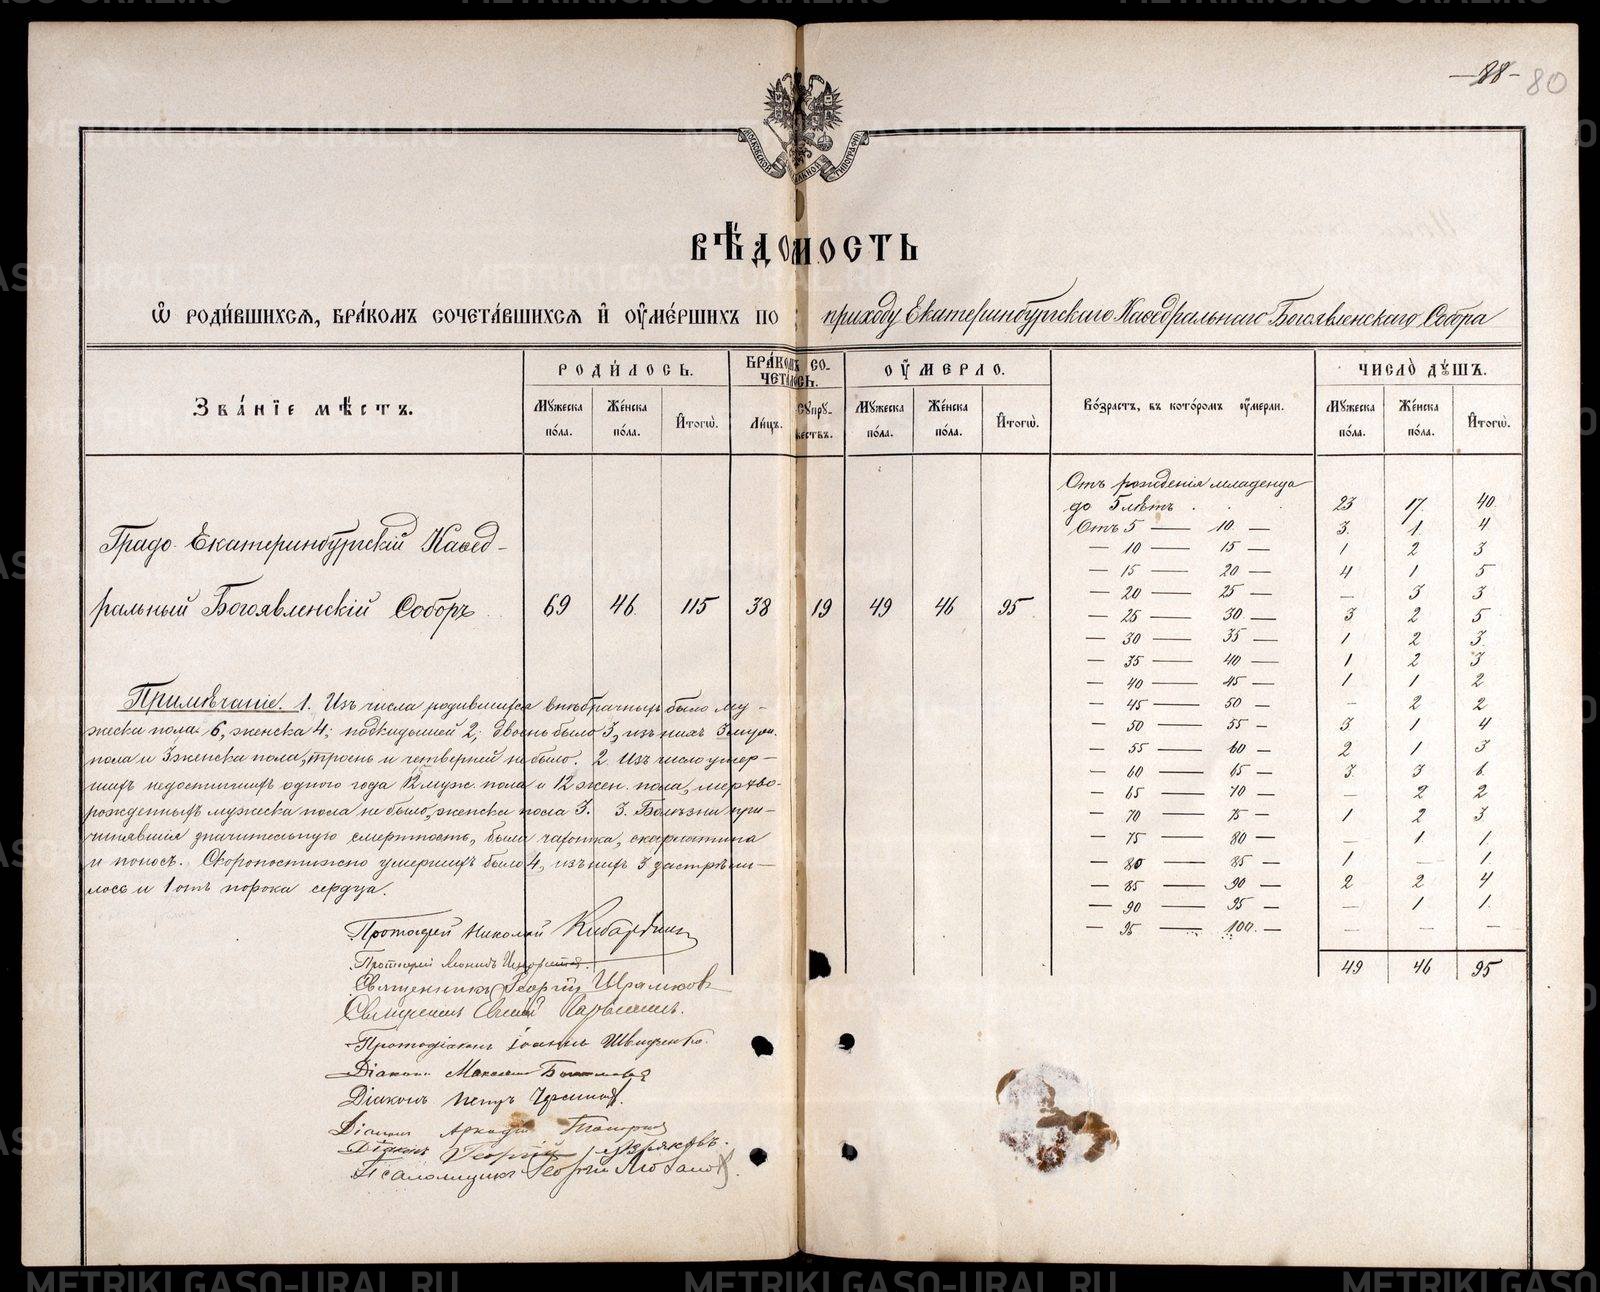 88 80
МОСКОВСКОЙ СѴНОДАЛЬНОЙ ТИПОГРАФIИ
ВѢ́ДОМОСТЬ
Ѽ РОДИ́ВШИХСѦ, БРА́КОМЪ СОЧЕТА́ВШИХСѦ И҆ ОУ҆МЕ́РШИХЪ ПО приходу Екатеринбургскаго Каѳедральнаго Богоявленскаго Собора
ЗВА́НЇЕ МѢ́СТЪ. РОДИ́ЛОСЬ. БРА́КОМЪ СОЧЕТАЛОСЬ. ОУ҆́МЕРЛО. Во́зрастъ, въ кото́ромъ оу҆́мерли. ЧИСЛО̀ ДꙊ́ШЪ.
Мꙋ́жеска по́ла. Же́нска по́ла. И҆того̀. Ли́цъ. Сꙋпрꙋ́жествъ. Мꙋ́жеска по́ла. Же́нска по́ла. И҆того̀. Мꙋ́жеска по́ла. Же́нска по́ла. И҆того̀.
Градо-Екатеринбургскій Каѳед-
ральный Богоявленскій Соборъ 69 46 115 38 19 49 46 95
Отъ рожденія младенца
до 5 лѣтъ . . . 23 17 40
Отъ 5 — 10 — 3 1 4
— 10 — 15 — 1 2 3
— 15 — 20 — 4 1 5
— 20 — 25 — — 3 3
— 25 — 30 — 3 2 5
— 30 — 35 — 1 2 3
— 35 — 40 — 1 2 3
— 40 — 45 — 1 1 2
— 45 — 50 — — 2 2
— 50 — 55 — 3 1 4
— 55 — 60 — 2 1 3
— 60 — 65 — 3 3 6
— 65 — 70 — — 2 2
— 70 — 75 — 1 2 3
— 75 — 80 — — 1 1
— 80 — 85 — 1 — 1
— 85 — 90 — 2 2 4
— 90 — 95 — — 1 1
— 95 — 100 — — — —
49 46 95
Примѣчаніе. 1. Изъ числа родившихся внѣбрачныхъ было му-
жеска пола 6, женска 4; подкидышей 2; двоень было 3, изъ нихъ 3 муж.
пола и 3 женска пола, троень и четверней не было. 2. Изъ числа умер-
шихъ недостигшихъ одного года 12 муж. пола и 12 жен. пола, мертво-
рожденныхъ мужеска пола не было, женска пола 3. 3. Болѣзни при-
чинявшія значительную смертность, были чахотка, скарлатина
и поносъ. Скоропостижно умершихъ было 4, изъ нихъ 3 застрѣли-
лось и 1 отъ порока сердца.
Протоіерей Николай
Протоіерей Леонидъ
Священникъ Георгій
Священникъ Евгеній
Протодіаконъ Іоаннъ
Діаконъ
Діаконъ Петръ
Діаконъ Аркадій
Діаконъ Георгій
Псаломщикъ Георгій
METRIKI.GASO-URAL.RU